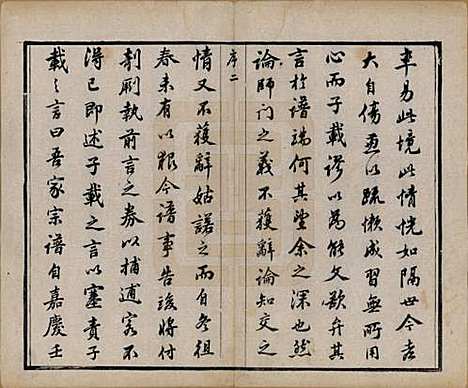 率易此境此情恍如隔世今老
大自傷重以疏懶成習無所用
心而子載謬以為能文欲弁其
言於譜端何其望余之深也然
論師門之義不獲辭論知交之
序二
情又不獲辭姑諾之而自冬徂
春未有以報今譜事告竣將付
剞劂執前言之券以捕逋客不
得已即述子載之言以塞責子
載之言曰吾家宗譜自嘉慶壬